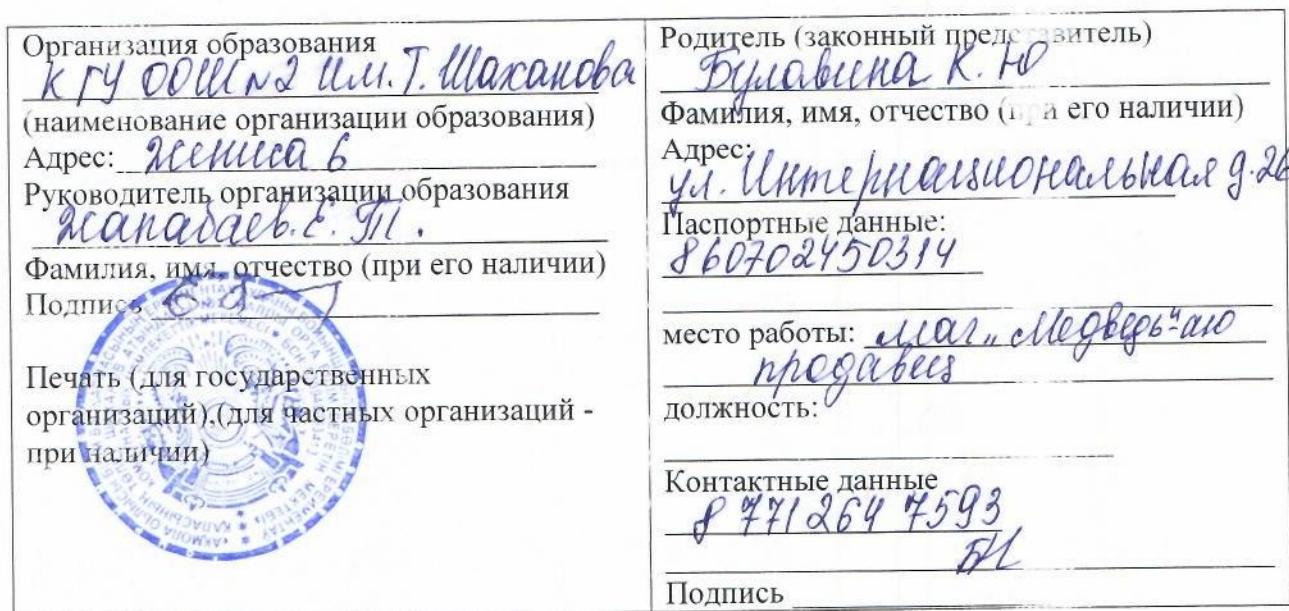 Организация образования
КГУ ООШ №2 им. Т. Шаханова
(наименование организации образования)
Адрес: Жениса 6
Руководитель организации образования
Жапабаев. Е. Т.
Фамилия, имя, отчество (при его наличии)
Подпись
Печать (для государственных
организаций),(для частных организаций -
при наличии)
Родитель (законный представитель)
Булавина К. Ю
Фамилия, имя, отчество (при его наличии)
Адрес:
ул. Интернациональная д. 26
Паспортные данные:
860702450314
место работы: маг „Медведь"аю
продавец
должность:
Контактные данные
8 771 264 7593
Подпись